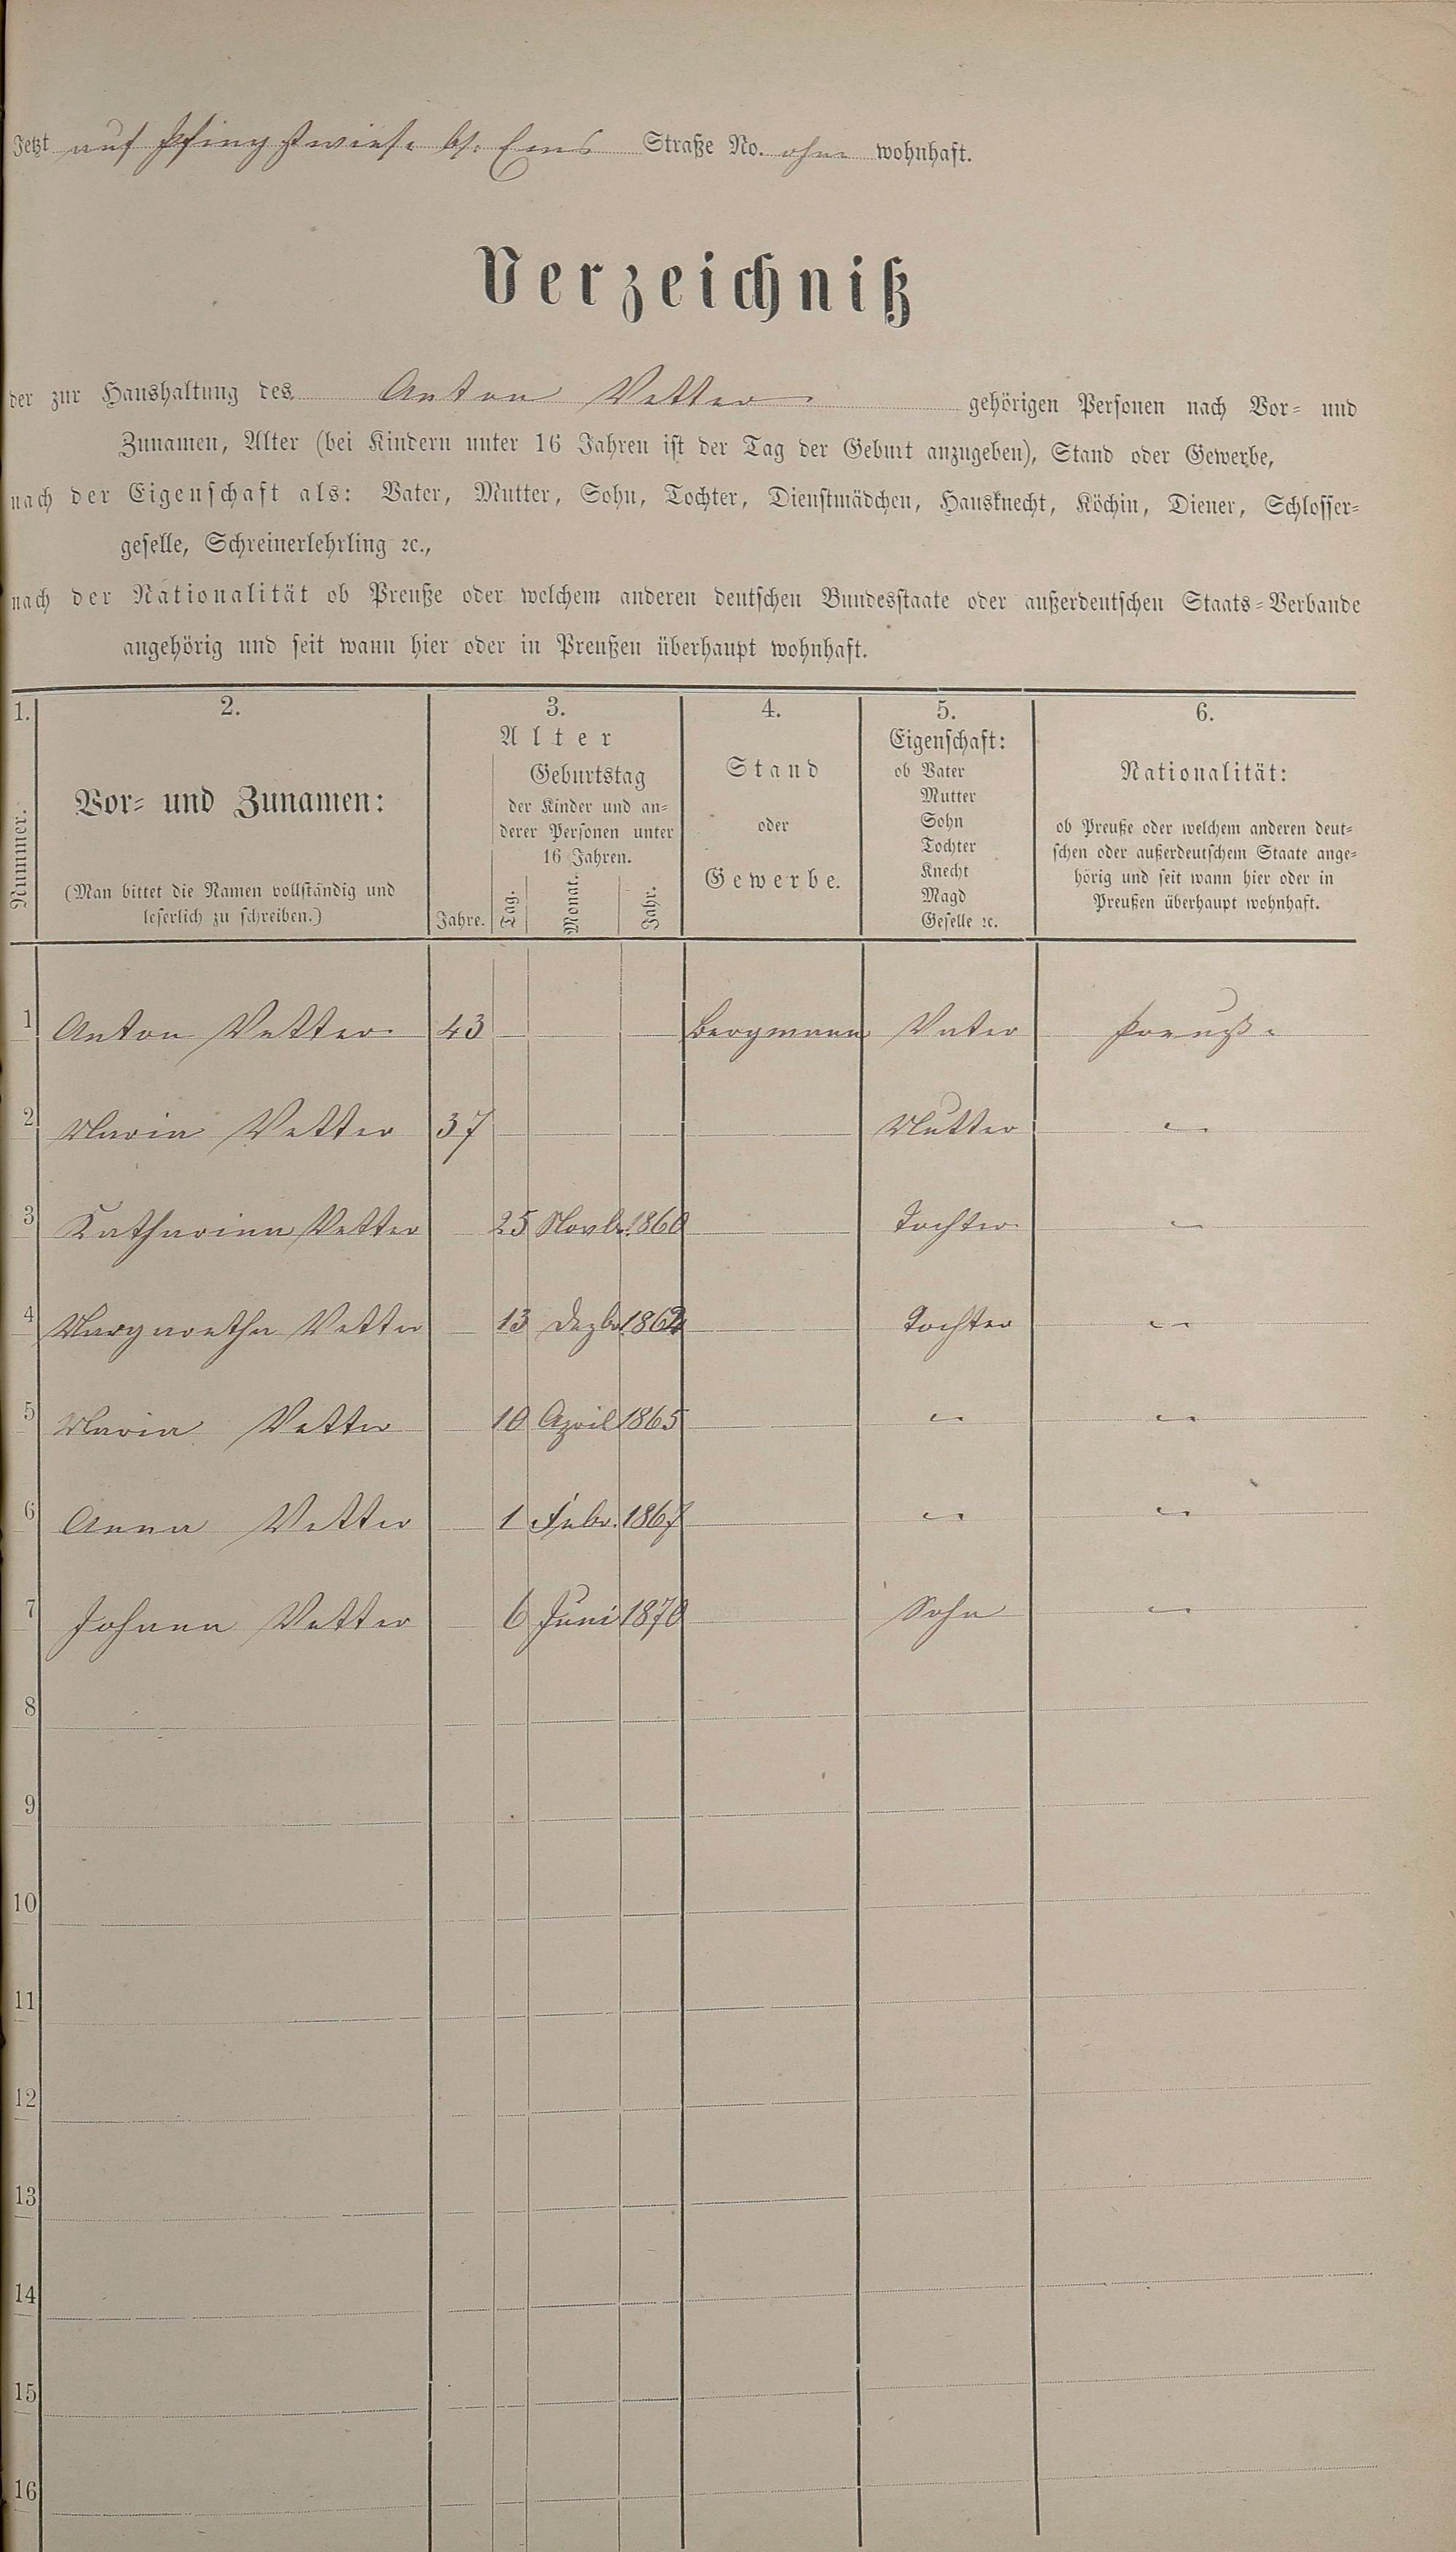 Jetzt auf Pfingstwiese bs. Ems Straße No. ohne wohnhaft.
Verzeichniß
der zur Haushaltung des Anton Vetter gehörigen Personen nach Vor- und
Zunamen, Alter (bei Kindern unter 16 Jahren ist der Tag der Geburt anzugeben), Stand oder Gewerbe,
nach der Eigenschaft als: Vater, Mutter, Sohn, Tochter, Dienstmädchen, Hausknecht, Köchin, Diener, Schlosser-
geselle, Schreinerlehrling ꝛc.,
nach der Nationalität ob Preuße oder welchem anderen deutschen Bundesstaate oder außerdeutschen Staats-Verbande
angehörig und seit wann hier oder in Preußen überhaupt wohnhaft.
1. 2. 3. 4. 5. 6.
Nummer.
Vor- und Zunamen:
(Man bittet die Namen vollständig und
leserlich zu schreiben.)
Alter
Jahre.
Geburtstag
der Kinder und an-
derer Personen unter
16 Jahren.
Tag. Monat. Jahr.
Stand
oder
Gewerbe.
Eigenschaft:
ob Vater
Mutter
Sohn
Tochter
Knecht
Magd
Geselle ꝛc.
Nationalität:
ob Preuße oder welchem anderen deut-
schen oder außerdeutschem Staate ange-
hörig und seit wann hier oder in
Preußen überhaupt wohnhaft.
1 Anton Vetter 43 Bergmann Vater Preuße
2 Maria Vetter 37 Mutter "
3 Katharina Vetter 25 Novbr. 1860 Tochter "
4 Margaretha Vetter 13 Dezbr. 1862 Tochter "
5 Maria Vetter 10 April 1865 " "
6 Anna Vetter 1 Febr. 1867 " "
7 Johann Vetter 6 Juni 1870 Sohn "
8
9
10
11
12
13
14
15
16